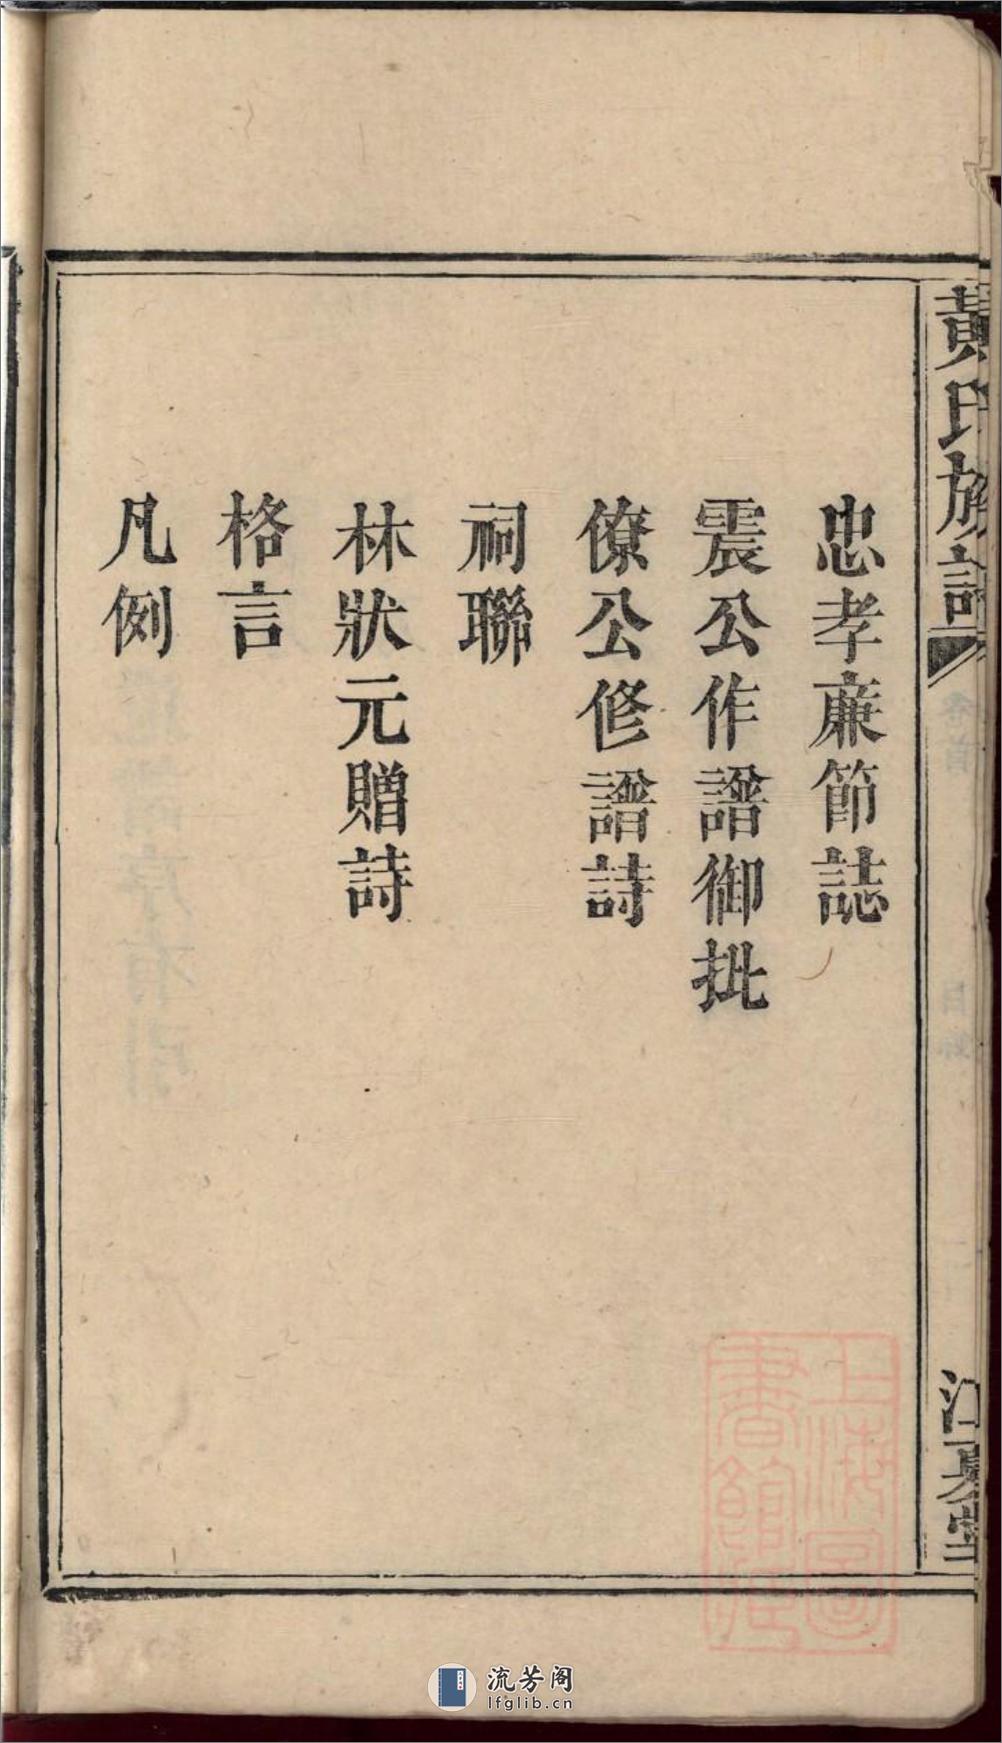 黃氏族譜
江夏堂
忠孝亷節誌
震公作譜御批
僚公修譜詩
祠聯
林狀元贈詩
格言
凡例
上海圖書館藏
流芳阁
lfglib.cn